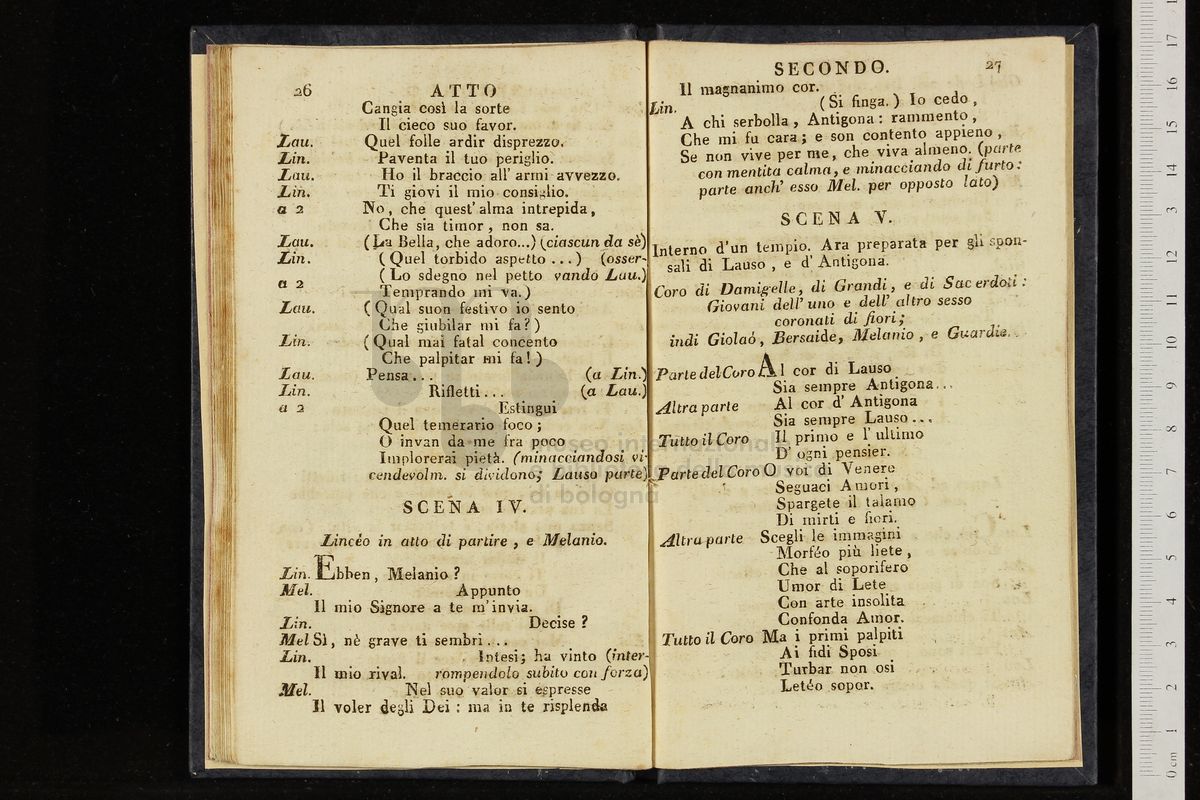 26 ATTO
Cangia così la sorte
Il cieco suo favor.
Lau. Quel folle ardir disprezzo.
Lin. Paventa il tuo periglio.
Lau. Ho il braccio all' armi avvezzo.
Lin. Ti giovi il mio consiglio.
a 2 No, che quest' alma intrepida,
Che sia timor, non sa.
Lau. (La Bella, che adoro...) (ciascun da sè)
Lin. (Quel torbido aspetto...) (osser-
a 2 (Lo sdegno nel petto vando Lau.)
Temprando mi va.)
Lau. (Qual suon festivo io sento
Che giubilar mi fa?)
Lin. (Qual mai fatal concento
Che palpitar mi fa!)
Lau. Pensa... (a Lin.)
Lin. Rifletti... (a Lau.)
a 2 Estingui
Quel temerario foco;
O invan da me fra poco
Implorerai pietà. (minacciandosi vi-
cendevolm. si dividono; Lauso parte)
SCENA IV.
Lincéo in atto di partire, e Melanio.
Lin. Ebben, Melanio?
Mel. Appunto
Il mio Signore a te m'invia.
Lin. Decise?
Mel Sì, nè grave ti sembri...
Lin. Intesi; ha vinto (inter-
Il mio rival. rompendolo subito con forza)
Mel. Nel suo valor si espresse
Il voler degli Dei: ma in te risplenda
SECONDO. 27
Il magnanimo cor.
Lin. (Si finga.) Io cedo,
A chi serbolla, Antigona: rammento,
Che mi fu cara; e son contento appieno,
Se non vive per me, che viva almeno. (parte
con mentita calma, e minacciando di furto:
parte anch' esso Mel. per opposto lato)
SCENA V.
Interno d'un tempio. Ara preparata per gli spon-
sali di Lauso, e d' Antigona.
Coro di Damigelle, di Grandi, e di Sacerdoti:
Giovani dell' uno e dell' altro sesso
coronati di fiori;
indi Giolaó, Bersaide, Melanio, e Guardie.
Parte del Coro Al cor di Lauso
Sia sempre Antigona...
Altra parte Al cor d' Antigona
Sia sempre Lauso...
Tutto il Coro Il primo e l' ultimo
D' ogni pensier.
Parte del Coro O voi di Venere
Seguaci Amori,
Spargete il talamo
Di mirti e fiori.
Altra parte Scegli le immagini
Morféo più liete,
Che al soporifero
Umor di Lete
Con arte insolita
Confonda Amor.
Tutto il Coro Ma i primi palpiti
Ai fidi Sposi
Turbar non osi
Letéo sopor.
museo internazionale
e biblioteca della musica
di bologna
0 cm 1 2 3 4 5 6 7 8 9 10 11 12 13 14 15 16 17